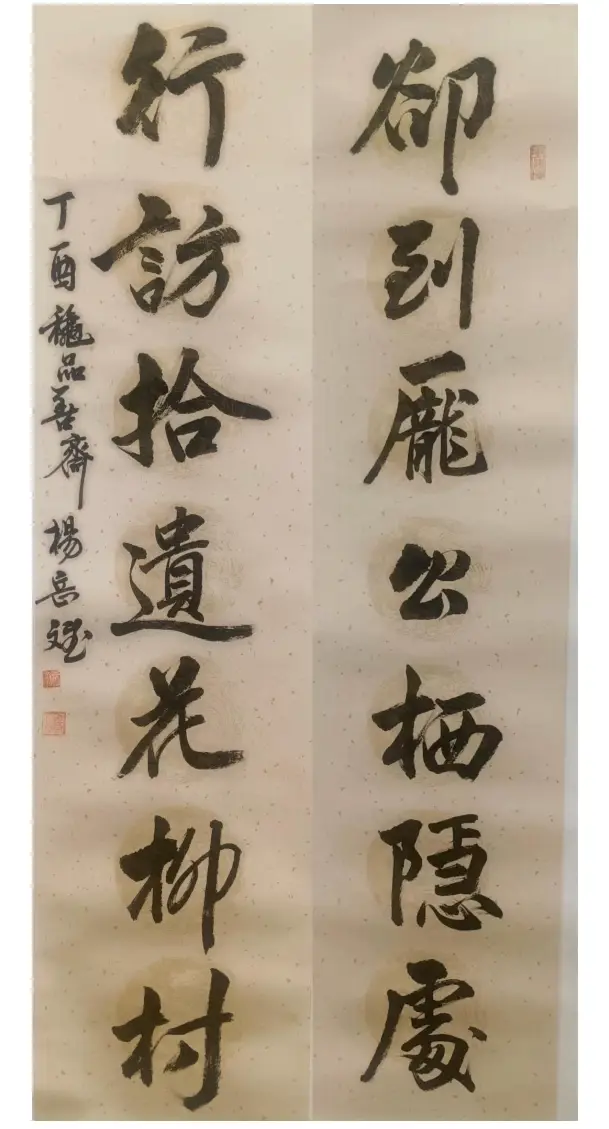 卻到龐公栖隱處
行訪拾遺花柳村
丁酉穐品善齋楊岳斌